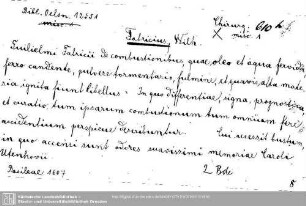 Bibl. Oelsn. 12551
Chirurg. 610
misc 1
Fabricius, Wilh.
Guilielmi Fabricii De combustionibus quae oleo et aqua fervida
ferro candente, pulvere tormentario, fulmine, et quavis alia mate-
ria ignita fiunt libellus. In quo differentiae, signa, prognostica
et curatio tum ipsarum combustionum tum omnium fere
accidentium perspicue describuntur. Cui accessit bustum,
in quo accensi sunt odores suavissimi memoriae Caroli
Utenhovii.
Basileae 1607
8